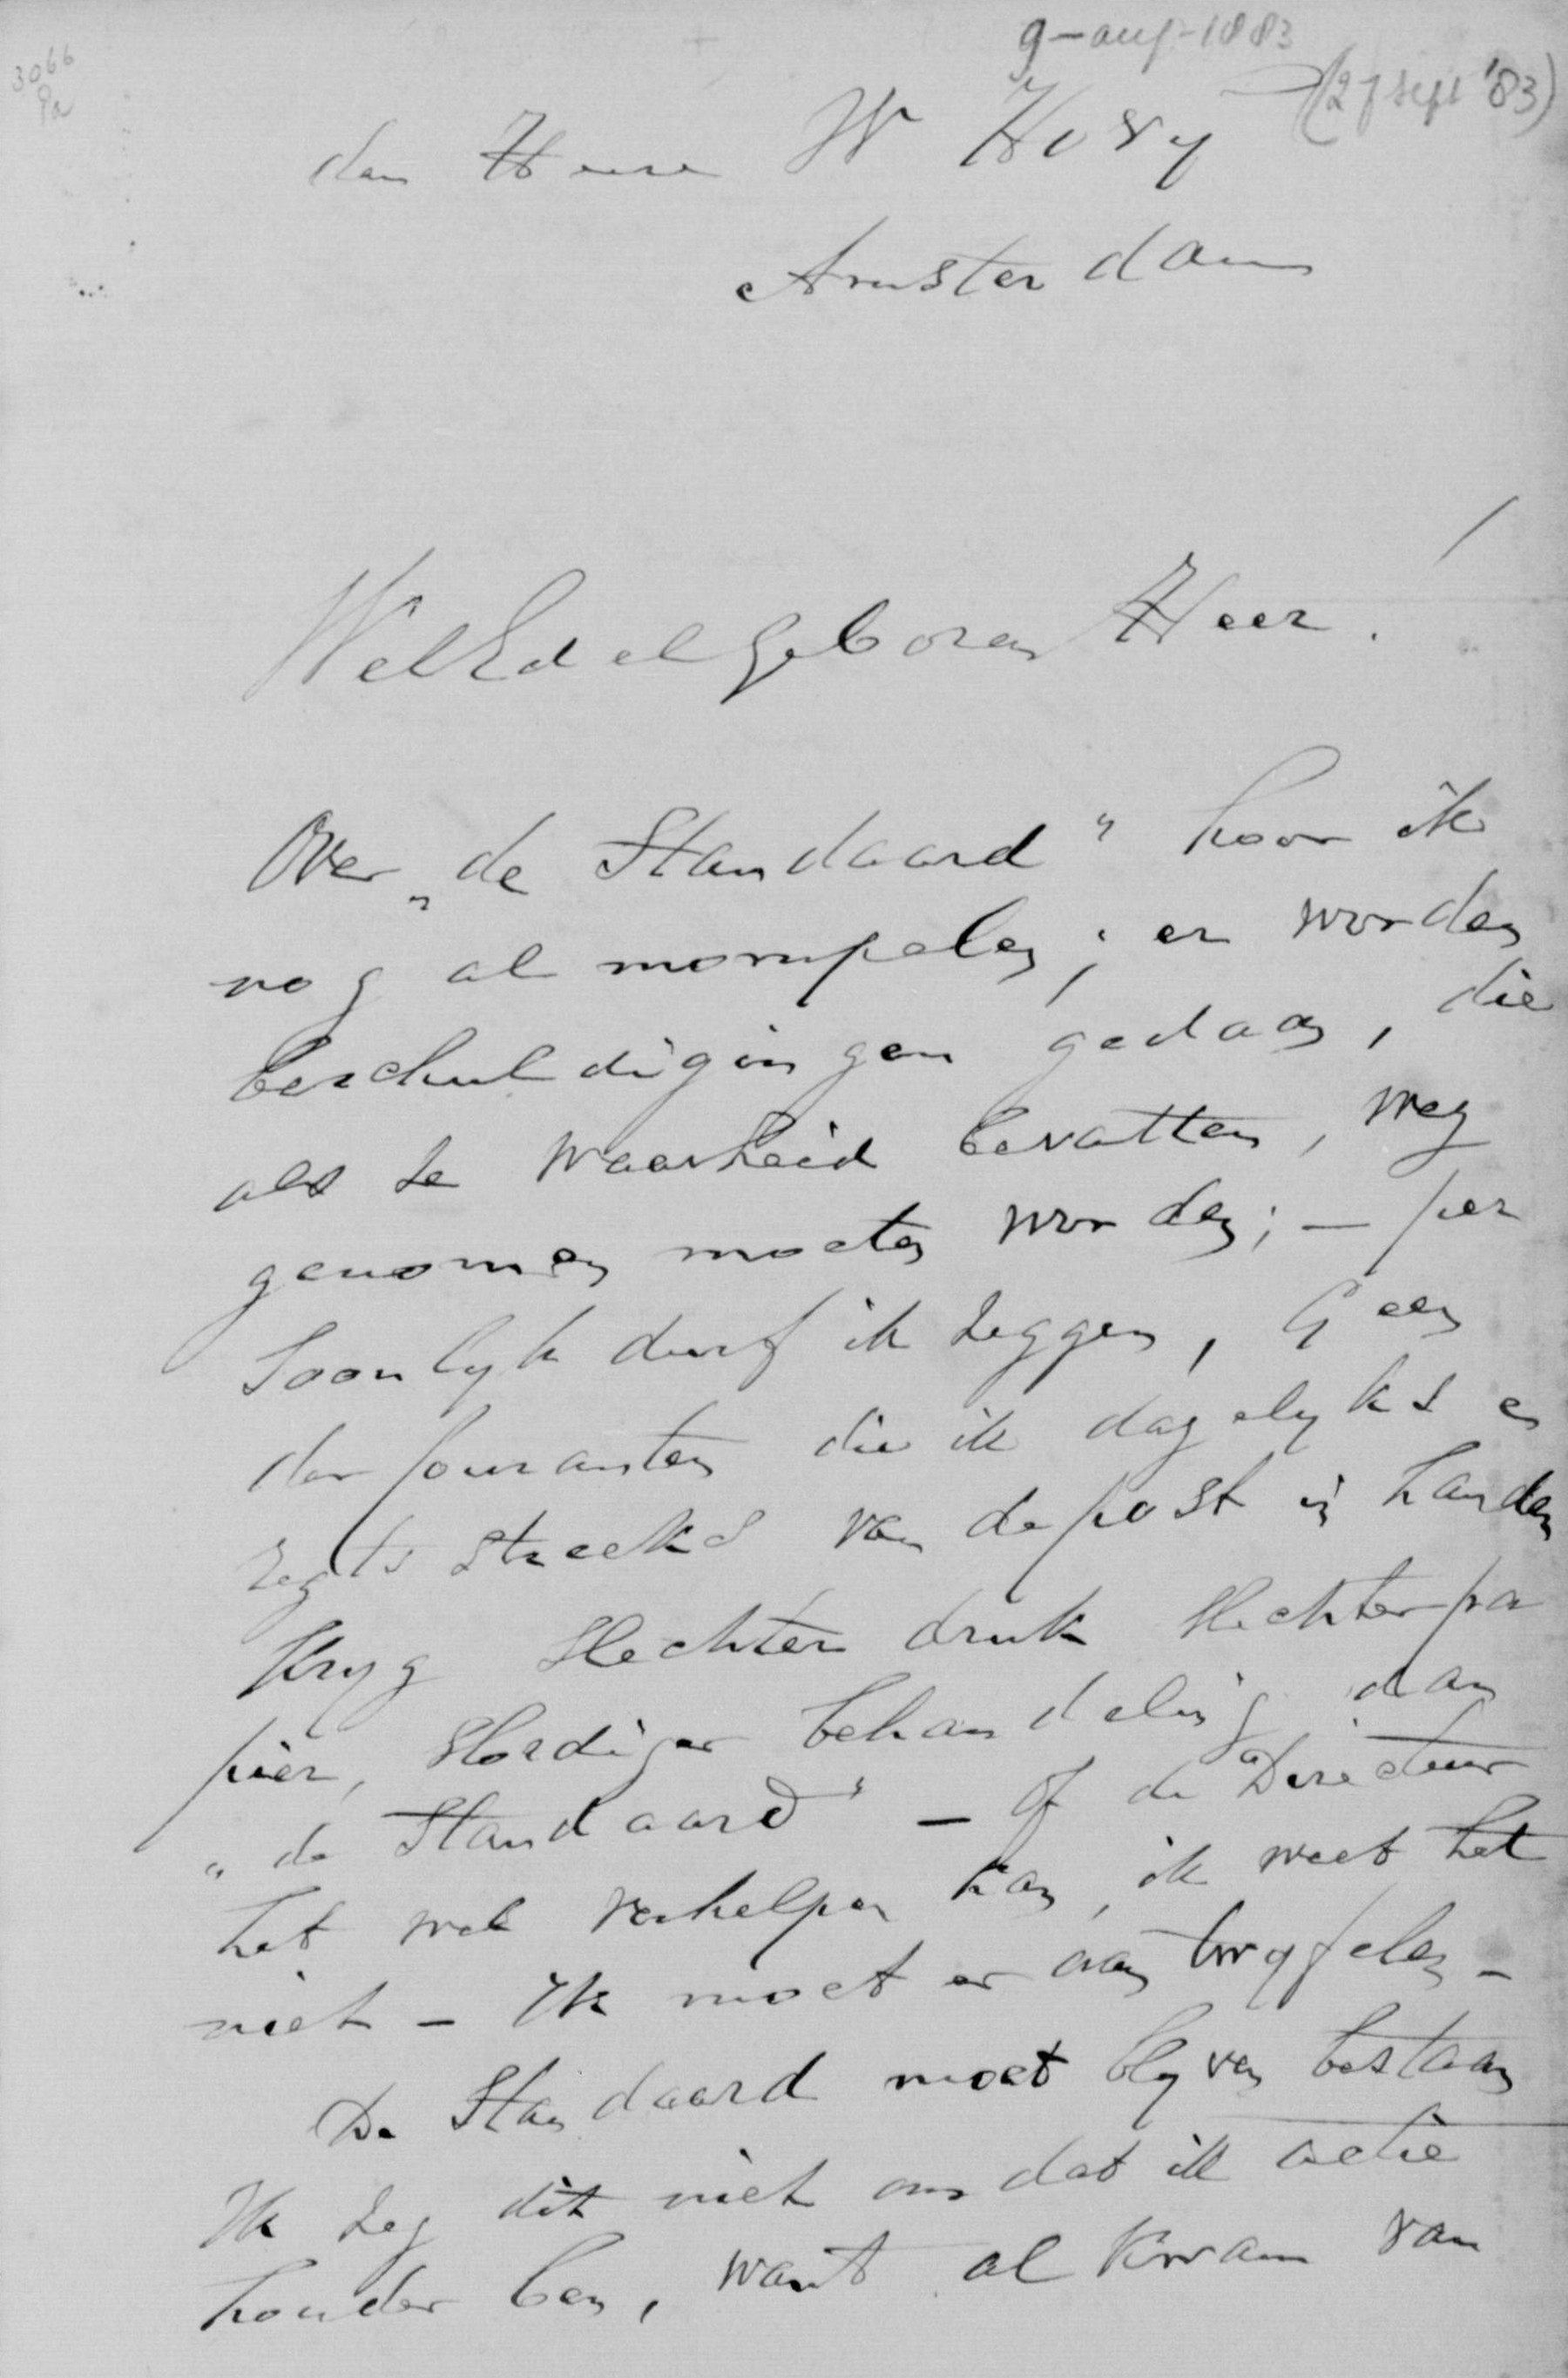 3066
9a
9-aug-1883
(27 sept '83)
den Heere W Hovy
Amsterdam
WelEdelgeboren Heer!
Over „de Standaard" hoor ik
nog al mompelen; er worden
beschuldigingen gedaan, die
als ze waarheid bevatten, weg
genomen moeten worden; - per
soonlyk durf ik zeggen, Geen
der couranten die ik dagelyks en
regtstreeks van de post in handen
kryg slechter druk slechter pa
pier, slordiger behandeling dan
„de Standaard" - of de Directeur
het wel verhelpen kan, ik weet het
niet - Ik moet er aan twyfelen -
De Standaard moet blyven bestaan
Ik zeg dit niet omdat ik actie
houder ben, want al kwam van